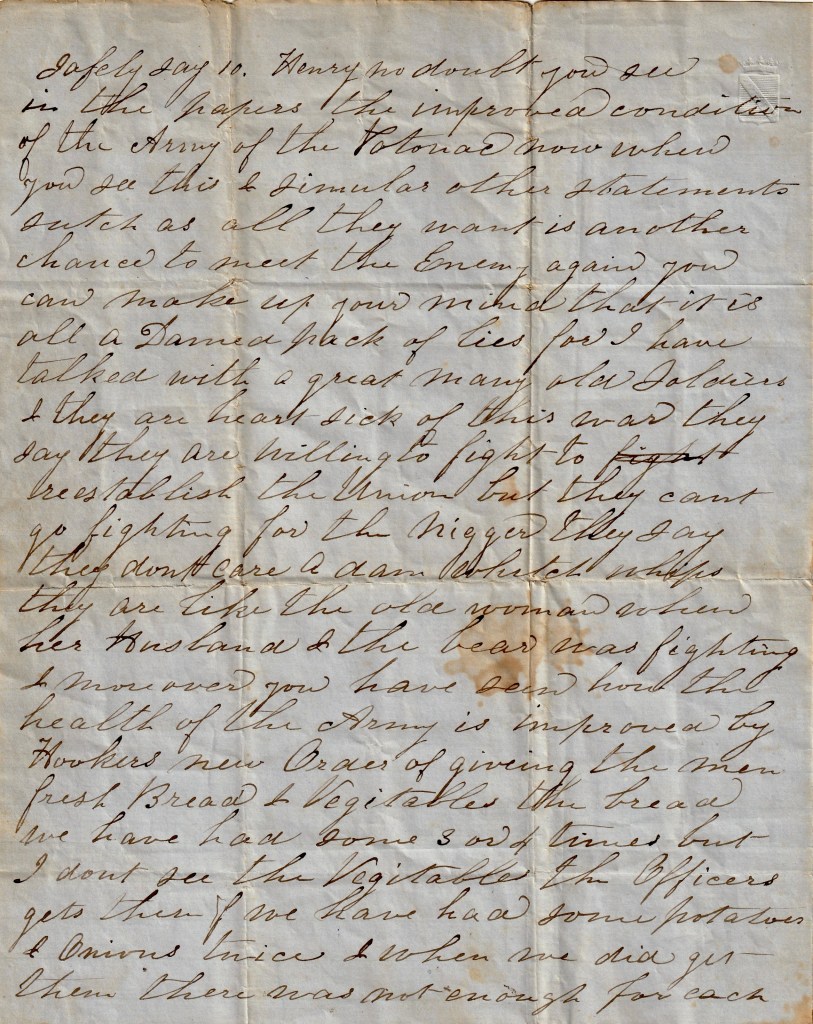 Safely say 10. Henry no doubt you see
in the papers the improved condition
of the Army of the Potomac now when
you see this & simular other statements
sutch as all they want is another
chance to meet the Enemy again you
can make up your mind that it is
all a Damed pack of lies for I have
talked with a great many old Soldiers
& they are heart sick of this war they
say they are willing to fight to fight
reestablish the Union but they cant
go fighting for the Nigger they say
they dont care a dam whitch whips
they are like the old woman when
her Husband & the bear was fighting
& moreover you have seen how the
health of the Army is improved by
Hookers new Order of giveing the men
fresh Bread & Vegitables the bread
we have had some 3 or 4 times but
I dont see the Vegitables the Officers
gets them we have had some potatoes
& Onions twice & when we did get
them there was not enough for each